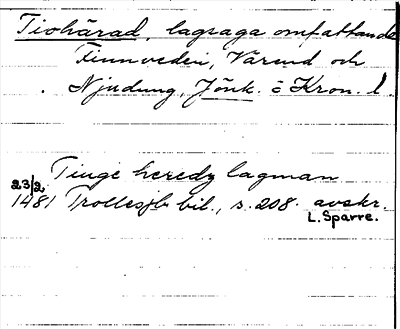 Tiohärad, lagsaga omfattande
Finnveden, Värend och
Njudung, Jönk. o Kron. l.
Tiuge heredz lagman
23/2
1481 Trollesjb bil., s. 208. avskr.
L. Sparre.